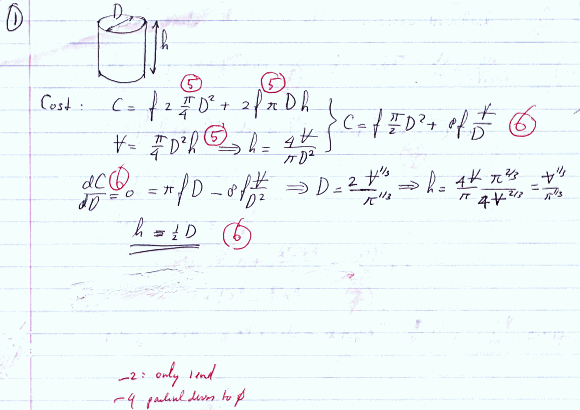 ① D
h
Cost: C = f 2 π/4 D² + 2f π D h ⑤ ⑤
V = π/4 D² h ⑤ ⇒ h = 4V/πD² } C = f π/2 D² + 8f V/D ⑥
dC/dD = 0 ⑥ = π f D − 8f V/D² ⇒ D = 2 V^1/3 / π^1/3 ⇒ h = 4V/π π^2/3 / 4V^2/3 = V^1/3 / π^1/3
h = ½ D ⑥
−2: only 1 end
−4 partial derivs to ϕ